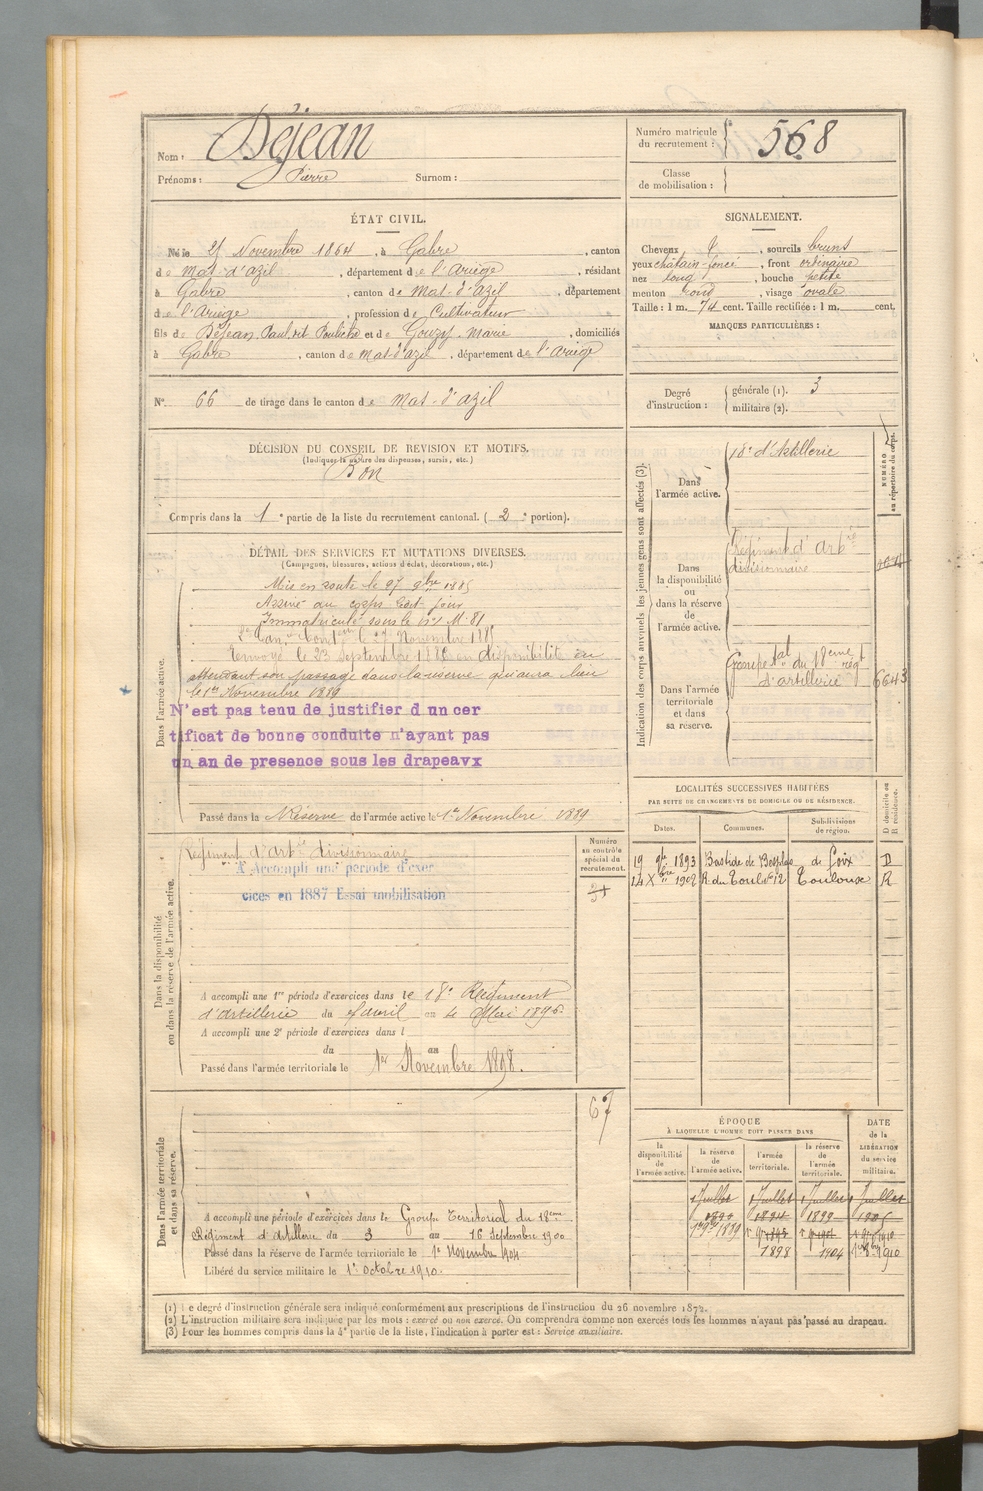 Nom : Déjean
Prénoms : Pierre Surnom :
Numéro matricule
du recrutement : 568
Classe
de mobilisation :
ÉTAT CIVIL.
Né le 25 Novembre 1864, à Gabre, canton
de Mas-d'azil, département de l'Ariège, résidant
à Gabre, canton de Mas-d'azil, département
de l'Ariège, profession de Cultivateur
fils de Déjean, Paul, et de Gouzy, Marie, domiciliés
à Gabre, canton de Mas-d'azil, département de l'Ariège
SIGNALEMENT.
Cheveux, sourcils bruns
yeux châtain-foncé, front ordinaire
nez long, bouche petite
menton rond, visage ovale
Taille : 1 m. 74 cent. Taille rectifiée : 1 m. cent.
MARQUES PARTICULIÈRES :
N° 66 de tirage dans le canton de Mas-d'azil
Degré
d'instruction :
générale (1). 3
militaire (2).
DÉCISION DU CONSEIL DE REVISION ET MOTIFS.
(Indiquer la nature des dispenses, sursis, etc.)
Bon
Compris dans la 1e partie de la liste du recrutement cantonal. (2e portion).
DÉTAIL DES SERVICES ET MUTATIONS DIVERSES.
(Campagnes, blessures, actions d'éclat, décorations, etc.)
Dans l'armée active.
Mis en route le 27 9bre 1885
Arrivé au corps ledit jour
Immatriculé sous le n° M. 81
2e Can. Cond. le 27 Novembre 1885
Envoyé le 23 Septembre 1886 en disponibilité en
attendant son passage dans la réserve qui aura lieu
le 1er Novembre 1889
N'est pas tenu de justifier d un cer
tificat de bonne conduite n'ayant pas
un an de presence sous les drapeavx
Passé dans la Réserve de l'armée active le 1er Novembre 1889
Indication des corps auxquels les jeunes gens sont affectés (3).
NUMÉRO
au répertoire du corps.
Dans
l'armée active.
18e d'Artillerie
Dans
la disponibilité
ou
dans la réserve
de
l'armée active.
Régiment d'artrie
divisionnaire
Dans l'armée
territoriale
et dans
sa réserve.
Groupe tal du 18eme régt
d'artillerie
6643
LOCALITÉS SUCCESSIVES HABITÉES
PAR SUITE DE CHANGEMENTS DE DOMICILE OU DE RÉSIDENCE.
Dates. Communes. Subdivisions
de région.
D domicile ou
R résidence.
19 9bre 1893 Bastide de Besplas de Foix D
14 Xbre 1902 Toulouse R
Dans la disponibilité
ou dans la réserve de l'armée active.
Régiment d'artrie divisionnaire
A Accompli une période d'exer
cices en 1887 Essai mobilisation
Numéro
au contrôle
spécial du
recrutement.
A accompli une 1re période d'exercices dans le 18e Régiment
d'artillerie du avril au 4 Mai 189
A accompli une 2e période d'exercices dans l
du au
Passé dans l'armée territoriale le 1er Novembre 1898.
67
Dans l'armée territoriale
et dans sa réserve.
A accompli une période d'exercices dans le Groupe Territorial du 18eme
Régiment d'Artillerie du 3 au 16 Septembre 1900
Passé dans la réserve de l'armée territoriale le 1er Novembre 1904
Libéré du service militaire le 1er octobre 1910.
ÉPOQUE
À LAQUELLE L'HOMME DOIT PASSER DANS
DATE
de la
LIBÉRATION
du service
militaire.
la
disponibilité
de
l'armée active.
la réserve
de
l'armée active.
l'armée
territoriale.
la réserve
de
l'armée
territoriale.
1 Juillet 1 Juillet 1 Juillet 1 Juillet
1890 1894 1899 1905
1er 9bre 1889
1898 1904
(1) Le degré d'instruction générale sera indiqué conformément aux prescriptions de l'instruction du 26 novembre 1872.
(2) L'instruction militaire sera indiquée par les mots : exercé ou non exercé. On comprendra comme non exercés tous les hommes n'ayant pas passé au drapeau.
(3) Pour les hommes compris dans la 4e partie de la liste, l'indication à porter est : Service auxiliaire.